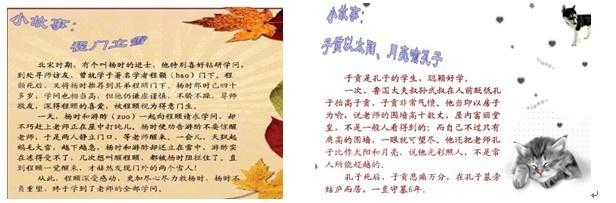 小故事：
程门立雪
北宋时期，有个叫杨时的进士，他特别喜好钻研学问，
到处寻师访友，曾就学于著名学者程颢（hao）门下。程
颢死后，又将杨时推荐到其弟程颐门下。杨时那时已四十
多岁，学问也相当高，但他仍谦虚谨慎，不骄不躁，尊师
敬友，深得程颐的喜爱，被程颐视为得意门生。
一天，杨时和游酢（zuo）一起向程颐请求学问，却
不巧赶上老师正在屋中打盹儿。杨时便劝告游酢不要惊醒
老师，于是两人静立门口，等老师醒来。一会儿，天飘起
鹅毛大雪，越下越急，杨时和游酢却还立在雪中，游酢实
在冻得受不了，几次想叫醒程颐，都被杨时阻拦住了。直
到程颐一觉醒来，才赫然发现门外的两个雪人！
从此，程颐深受感动，更加尽心尽力教杨时，杨时不
负重望，终于学到了老师的全部学问。
小故事：
子贡以太阳、月亮喻孔子
子贡是孔子的学生，聪颖好学。
一次，鲁国大夫叔孙武叔在人前贬低孔
子抬高子贡，子贡非常气愤，他当即以房子
为喻，说老师的围墙高十数丈，屋内富丽堂
皇，不是一般人看得到的；而自己不过只有
肩高的围墙，一眼就可望尽。他还把老师孔
子比作太阳和月亮，说他光彩照人，不是常
人所能超越的。
孔子死后，子贡悲痛万分，在孔子墓旁
结庐而居，一直守墓6年。